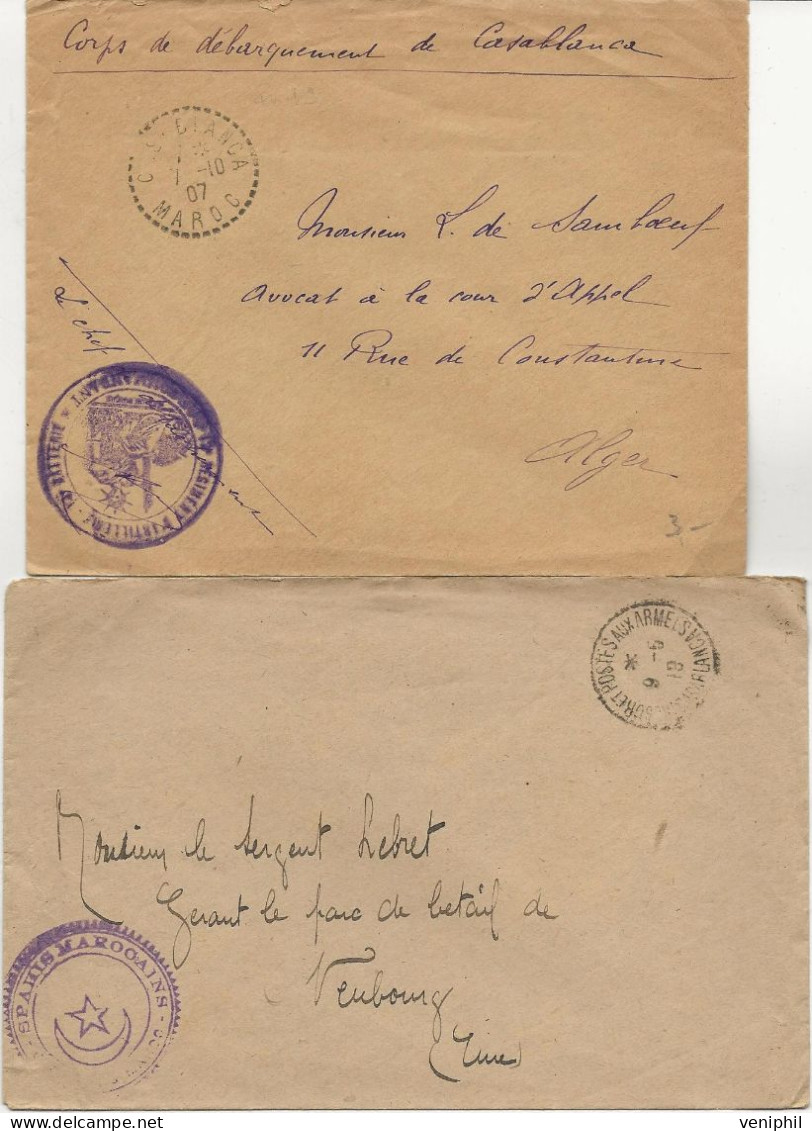 Corps de débarquement de Casablanca
BLANCA
-10
07
MAROC
Monsieur L. de Sambœuf
Avocat à la cour d'Appel
11 Rue de Constantine
Alger
Le chef
RÉGIMENT D'ARTILLERIE
BATTERIE
3,-
POSTES AUX ARMEES
9-6
19
*
Monsieur le Sergent Lebret
Gerant le parc de betail de
Neubourg
(Eure)
SPAHIS MAROCAINS
www.delcampe.net
veniphil